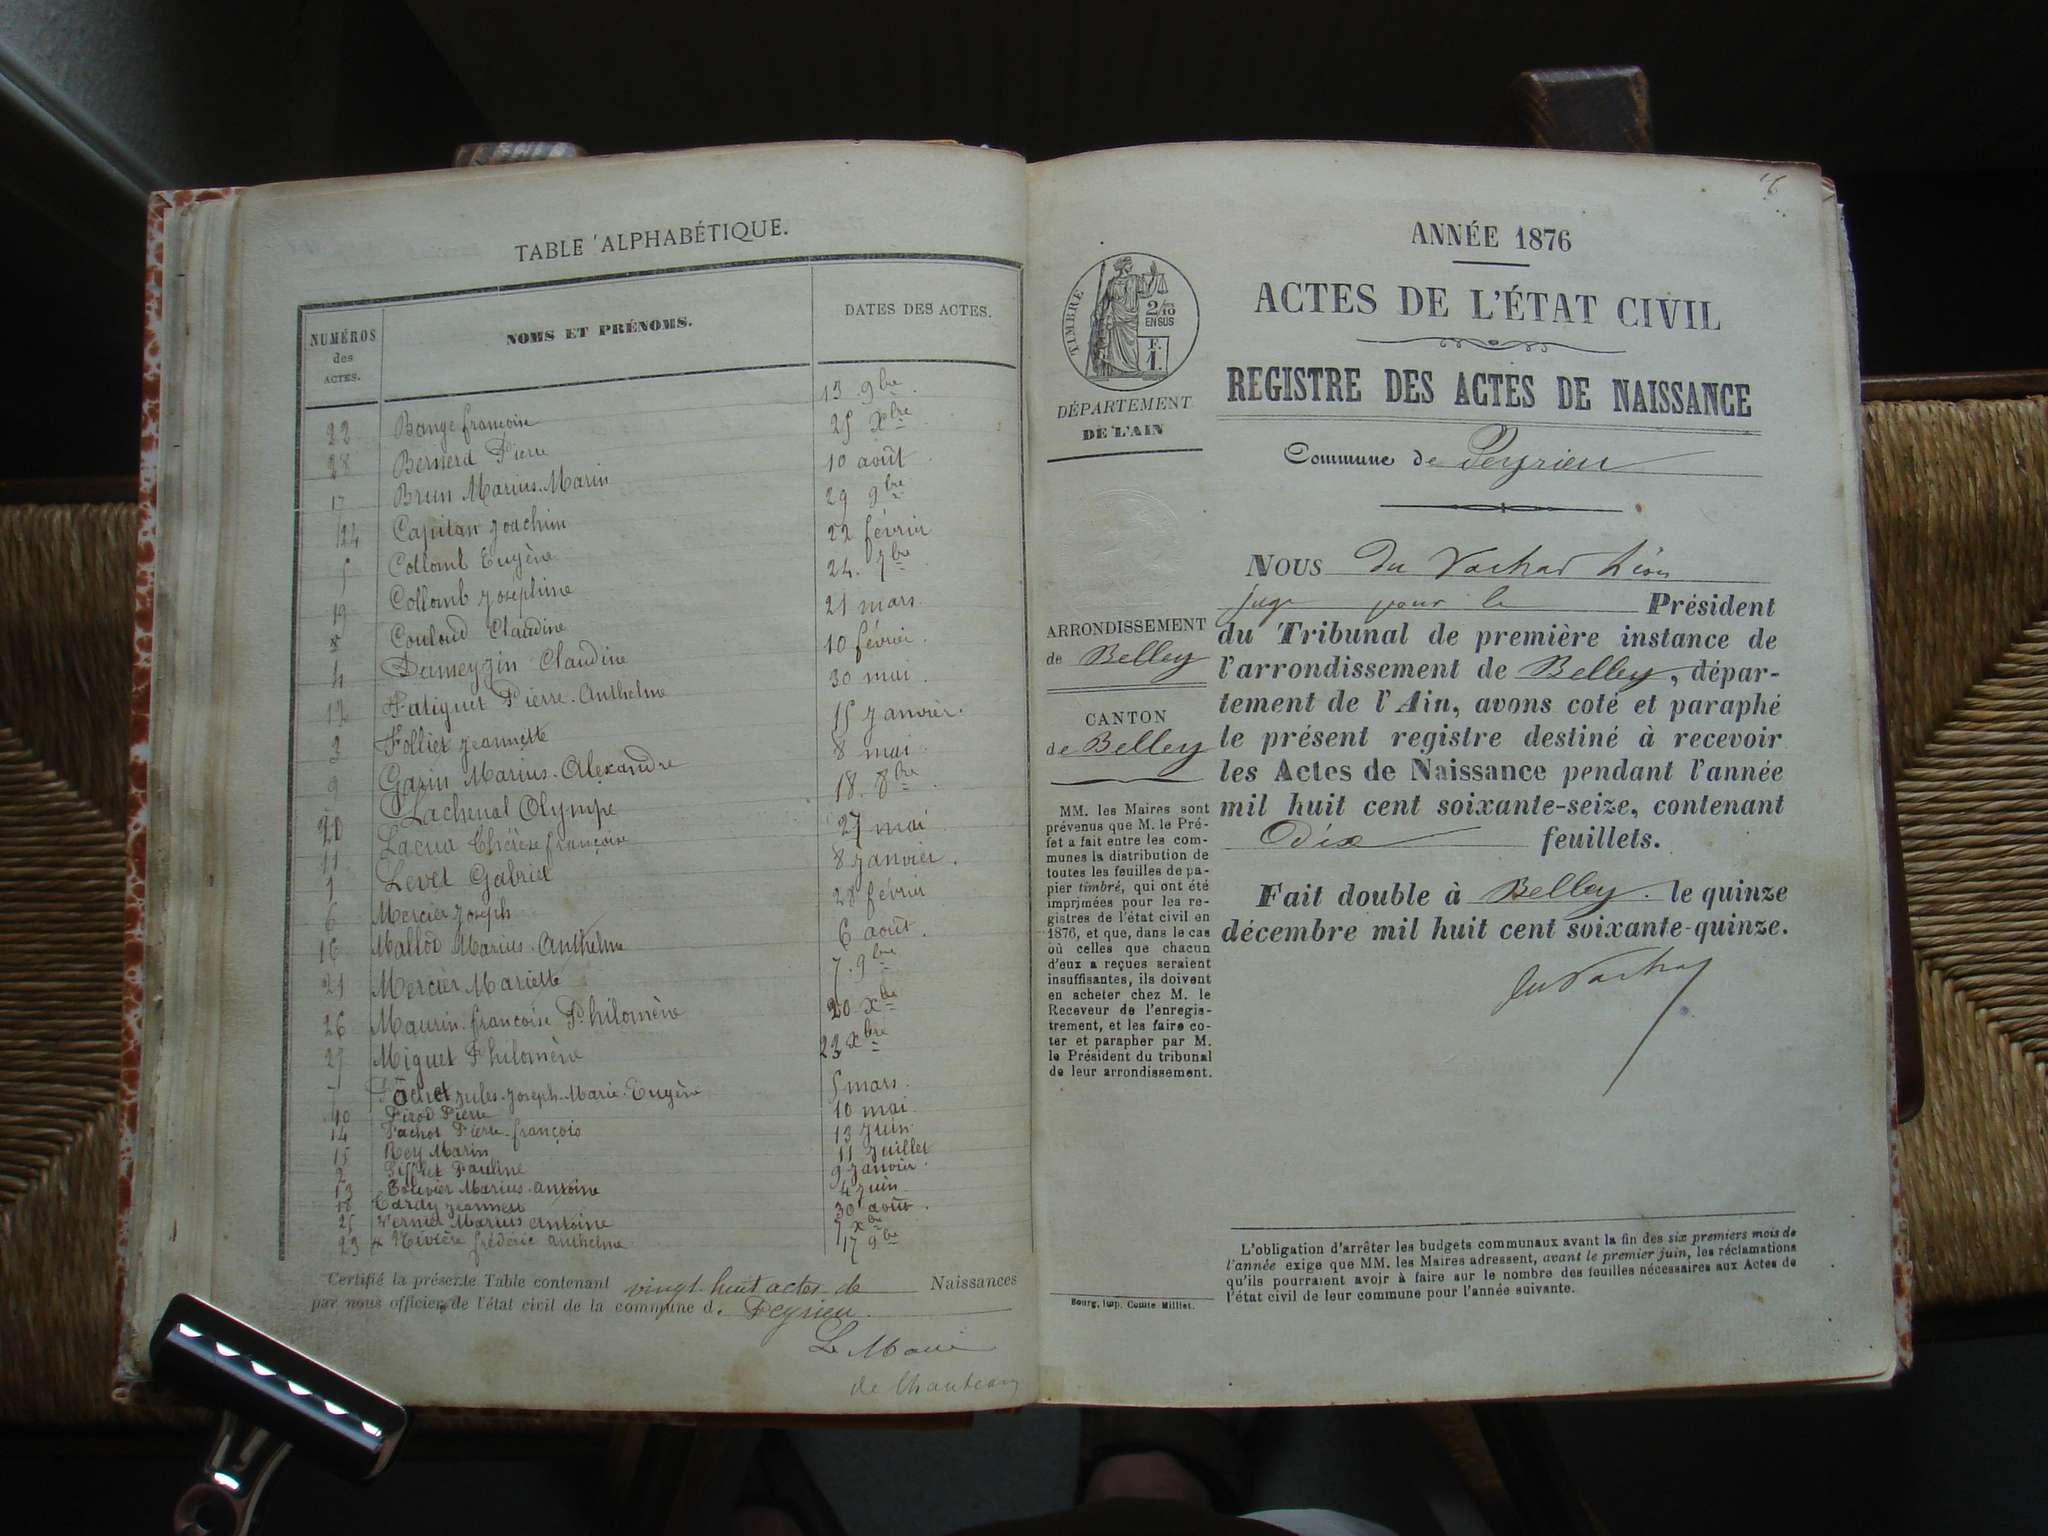 TABLE ALPHABÉTIQUE.
NUMÉROS
des
ACTES.
NOMS ET PRÉNOMS.
DATES DES ACTES.
22 Bange françoise 13 9bre
28 Bernerd Pierre 25 Xbre
17 Brun Marius Marin 10 août
24 Capitan Joachim 29 9bre
5 Collomb Eugène 22 février
19 Collomb Joséphine 24 7bre
8 Couloud Claudine 21 mars
4 Dameyzin Claudine 10 février
12 Fatiguet Pierre-Anthelme 30 mai
3 Folliet Jeannette 15 Janvier
9 Garin Marius-Alexandre 8 mai
20 Lachenal Olympe 18 8bre
11 Lacua Thérèse françoise 27 mai
1 Levet Gabriel 8 Janvier
6 Mercier Joseph 28 février
16 Mallod Marius-Anthelme 6 août
21 Mercier Mariette 7 9bre
26 Maurin françoise Philomène 20 Xbre
27 Miguet Philomène 23 Xbre
7 Jules-Joseph-Marie-Eugène 5 mars
10 Pirod Pierre 10 mai
14 Pachot Pierre-françois 13 Juin
15 Rey Marin 11 Juillet
2 Siffret Pauline 9 Janvier
13 Touvier Marius-antoine 4 juin
18 Tardy Jeannette 30 août
25 Vernier Marius antoine 7 Xbre
23 Rivière frédéric anthelme 17 9bre
Certifié la présente Table contenant vingt-huit actes de Naissances
par nous officier de l'état civil de la commune d. Peyrieu
Le Maire
16
ANNÉE 1876
ACTES DE L'ÉTAT CIVIL
REGISTRE DES ACTES DE NAISSANCE
TIMBRE
2/10
EN SUS
F.
1.
DÉPARTEMENT
DE L'AIN
Commune de Peyrieu
Nous Du Vachat Léon
juge pour le Président
du Tribunal de première instance de
l'arrondissement de Belley, dépar-
tement de l'Ain, avons coté et paraphé
le présent registre destiné à recevoir
les Actes de Naissance pendant l'année
mil huit cent soixante-seize, contenant
Dix feuillets.
Fait double à Belley. le quinze
décembre mil huit cent soixante-quinze.
du Vachat
ARRONDISSEMENT
de Belley
CANTON
de Belley
MM. les Maires sont
prévenus que M. le Pré-
fet a fait entre les com-
munes la distribution de
toutes les feuilles de pa-
pier timbré, qui ont été
imprimées pour les re-
gistres de l'état civil en
1876, et que, dans le cas
où celles que chacun
d'eux a reçues seraient
insuffisantes, ils doivent
en acheter chez M. le
Receveur de l'enregis-
trement, et les faire co-
ter et parapher par M.
le Président du tribunal
de leur arrondissement.
Bourg, Imp. Comte-Milliet.
L'obligation d'arrêter les budgets communaux avant la fin des six premiers mois de
l'année exige que MM. les Maires adressent, avant le premier juin, les réclamations
qu'ils pourraient avoir à faire sur le nombre des feuilles nécessaires aux Actes de
l'état civil de leur commune pour l'année suivante.